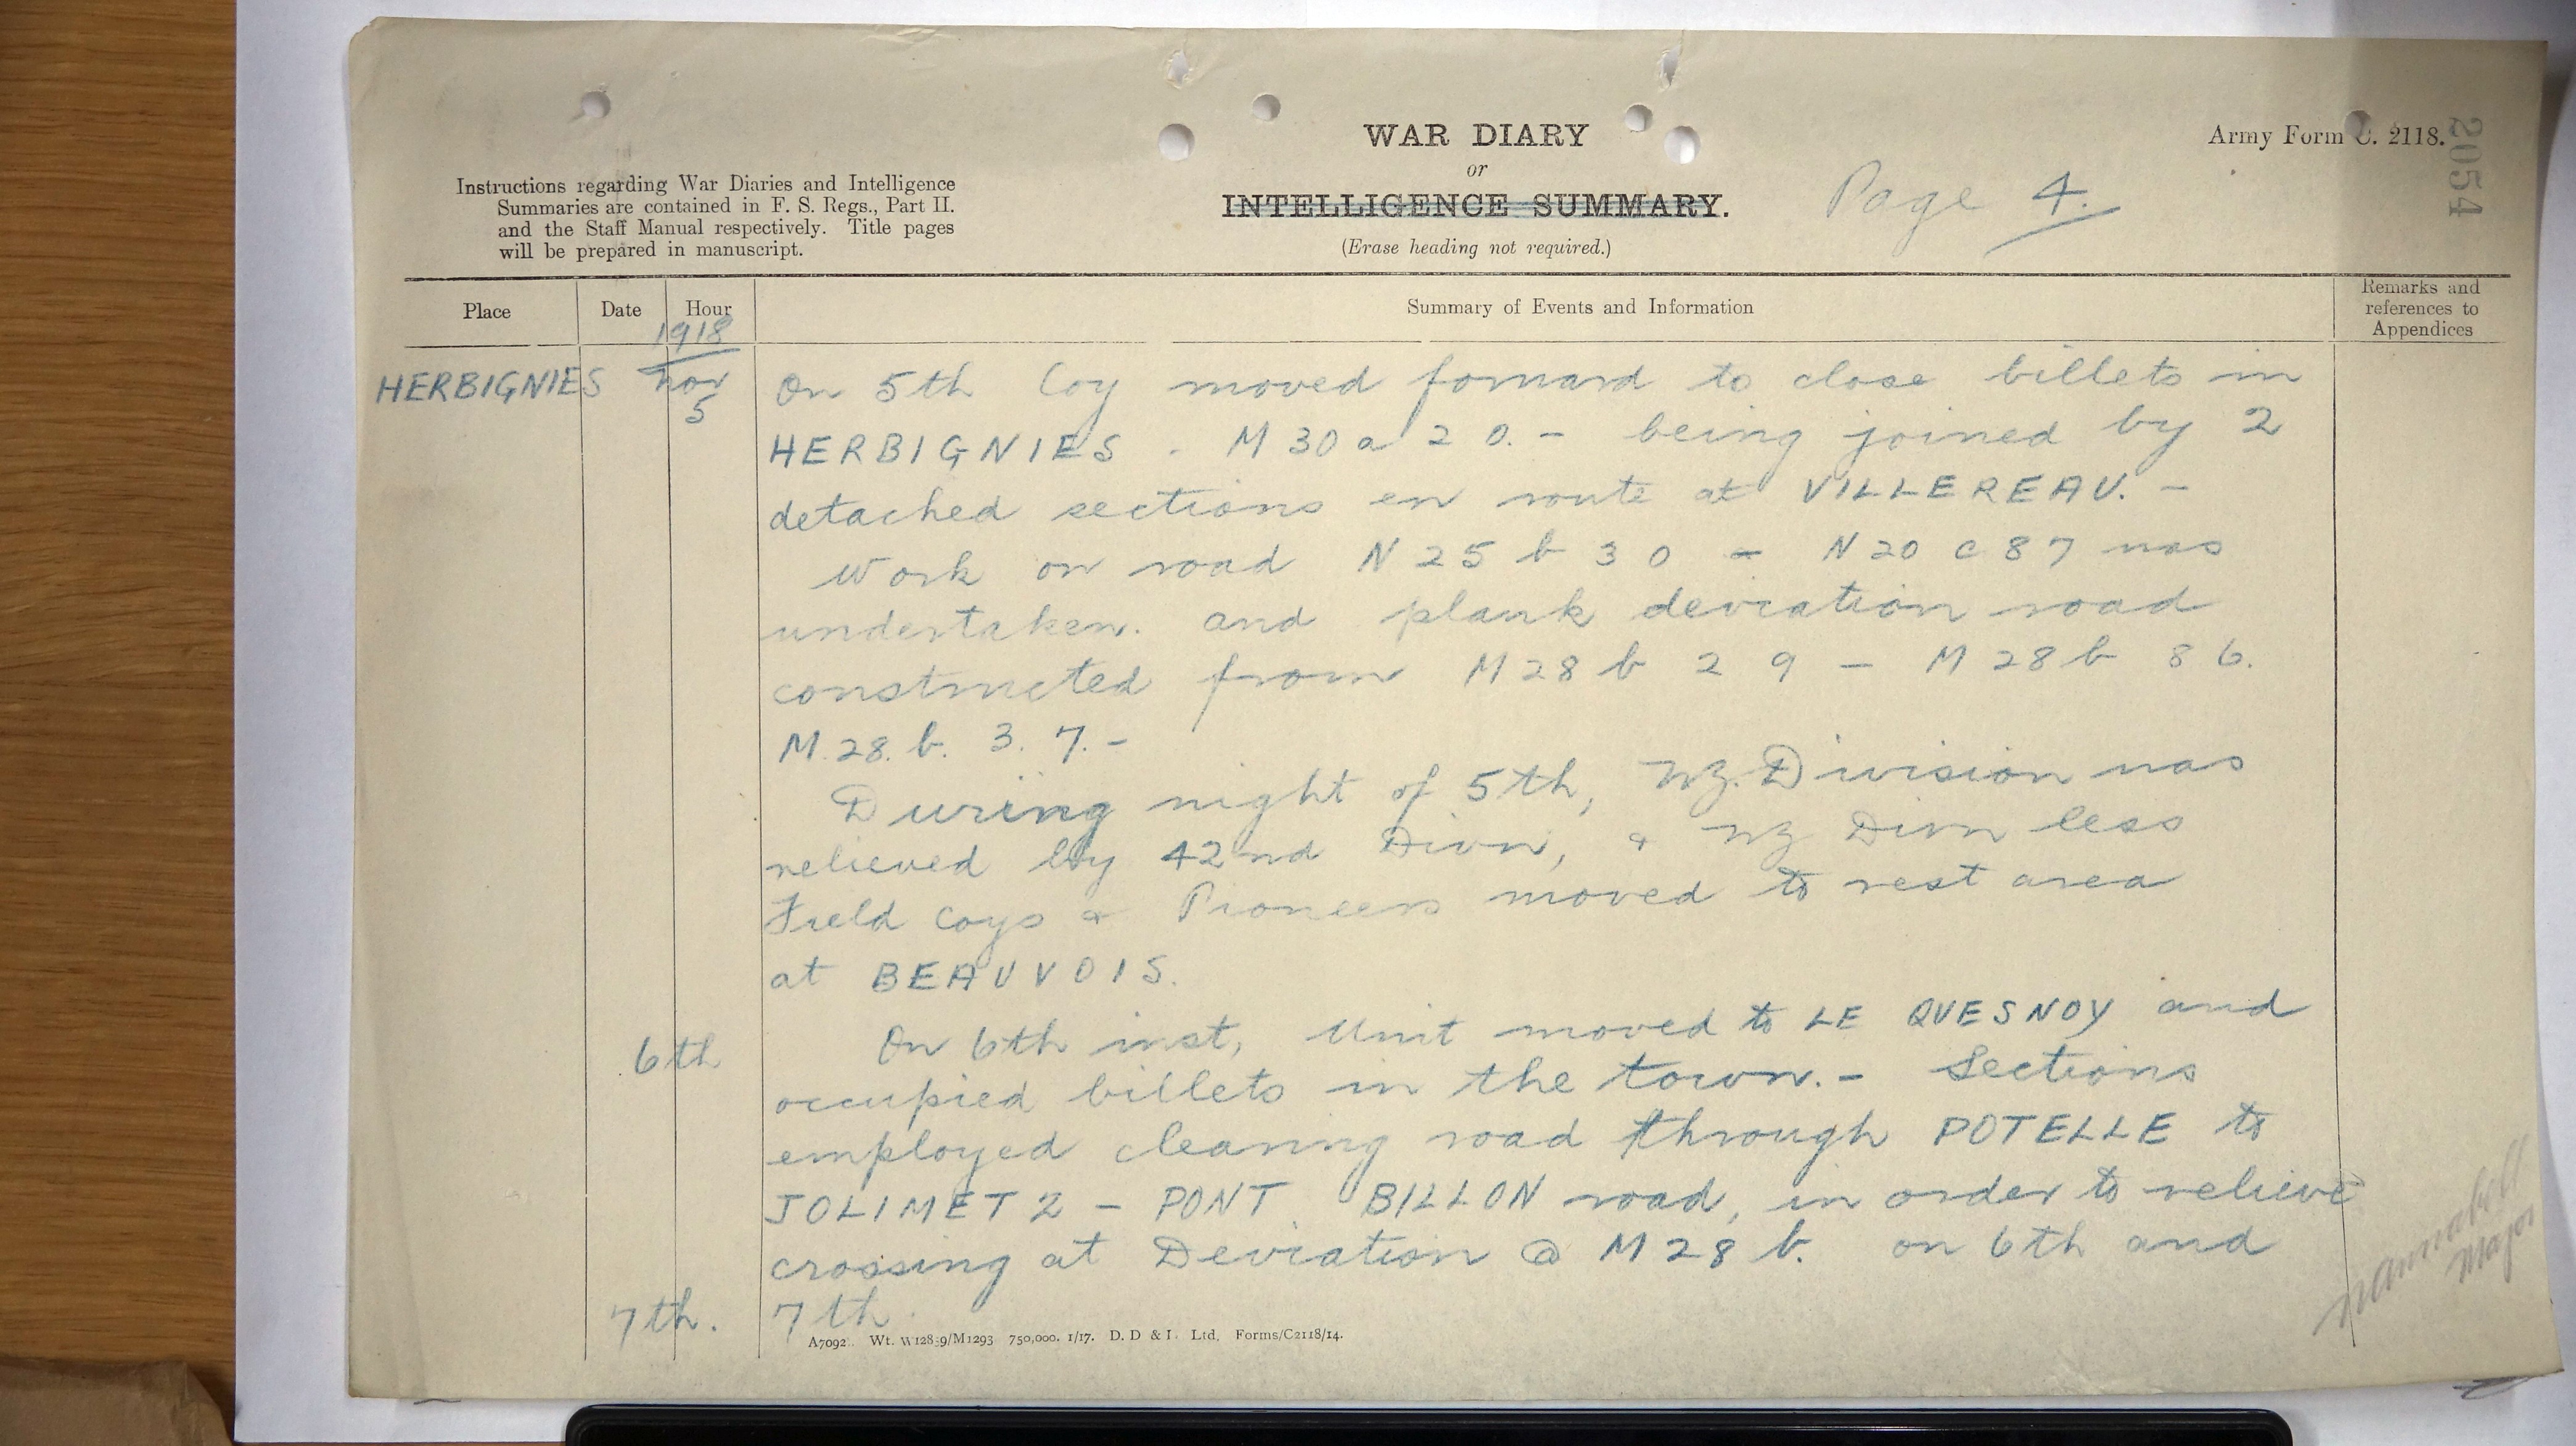 WAR DIARY
or
INTELLIGENCE SUMMARY.
(Erase heading not required.)
Army Form C. 2118.
2054
Page 4.
Instructions regarding War Diaries and Intelligence
Summaries are contained in F. S. Regs., Part II.
and the Staff Manual respectively. Title pages
will be prepared in manuscript.
Place Date Hour Summary of Events and Information Remarks and references to Appendices
1918
HERBIGNIES Nov 5 On 5th Coy moved forward to close billets in
HERBIGNIES. M 30 a 2 0. - being joined by 2
detached sections en route at VILLEREAU. -
Work on road N 25 b 3 0 - N 20 c 8 7 was
undertaken. and plank deviation road
constructed from M 28 b 2 9 - M 28 b 8 6.
M. 28. b. 3. 7. -
During night of 5th, NZ. Division was
relieved by 42nd Divn, & NZ Divn less
Field Coys & Pioneers moved to rest area
at BEAUVOIS.
6th On 6th inst, Unit moved to LE QUESNOY and
occupied billets in the town. - Sections
employed clearing road through POTELLE to
JOLIMETZ - PONT BILLON road, in order to relieve
crossing at Deviation @ M 28 b. on 6th and
7th. 7th
Major
A7092. Wt. W128 9/M1293 750,000. 1/17. D. D & I. Ltd. Forms/C2118/14.